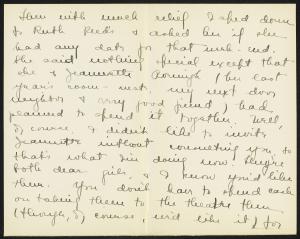 Then with much relief I sped down
to Ruth Reed's & asked her if she
had any date for that week-end.
She said nothing special except that
she & Jeannette (her last
year's room-mate, my next door
neighbor & very good friend) had
planned to spend it together. Well,
of course, I didn't like to invite
Jeannette without consulting you, so
that's what I'm doing now. They're
both dear girls, & I know you'd like
them. You don't have to spend cash
on taking them to the theatre then
(though, of course, we'd like it) for